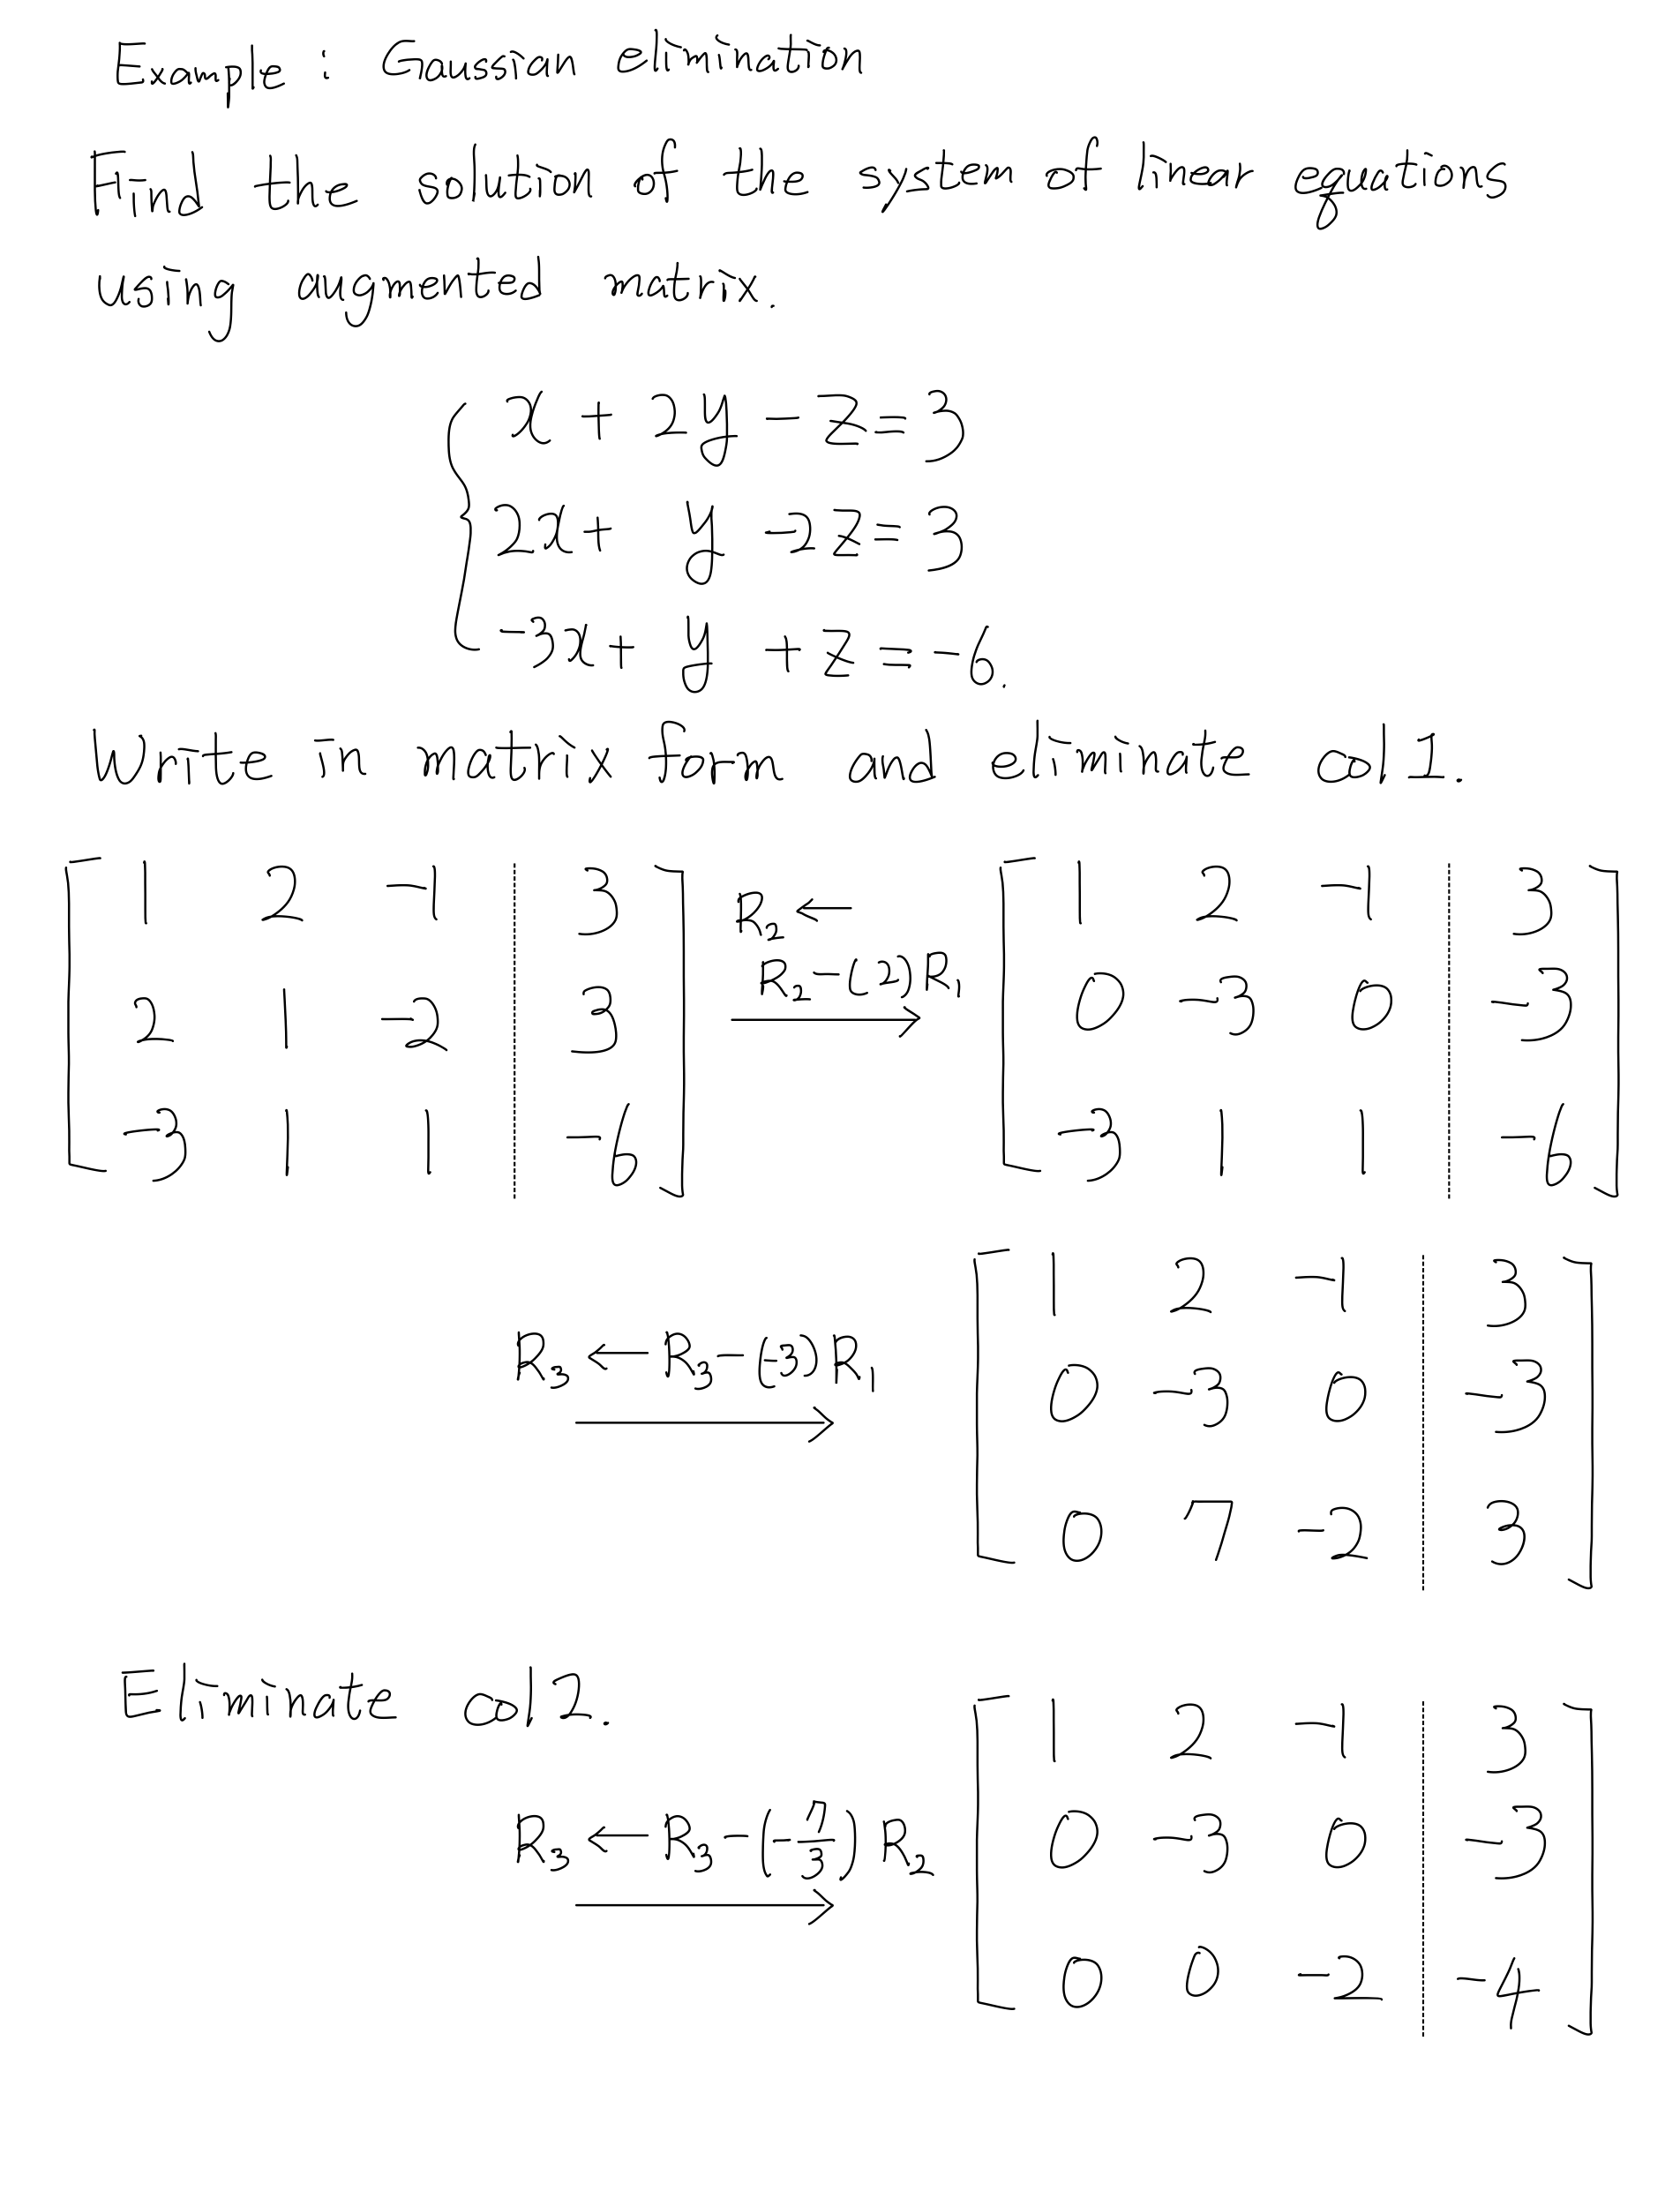 Example : Gaussian elimination
Find the solution of the system of linear equations
using augmented matrix.
x + 2y - z = 3
2x + y - 2z = 3
-3x + y + z = -6.
Write in matrix form and eliminate col 1.
[ 1 2 -1 | 3 ] R₂ ← [ 1 2 -1 | 3 ]
[ 2 1 -2 | 3 ] R₂ - (2) R₁ → [ 0 -3 0 | -3 ]
[ -3 1 1 | -6 ] [ -3 1 1 | -6 ]
[ 1 2 -1 | 3 ]
R₃ ← R₃ - (-3) R₁ → [ 0 -3 0 | -3 ]
[ 0 7 -2 | 3 ]
Eliminate col 2.
[ 1 2 -1 | 3 ]
R₃ ← R₃ - (-7/3) R₂ → [ 0 -3 0 | -3 ]
[ 0 0 -2 | -4 ]